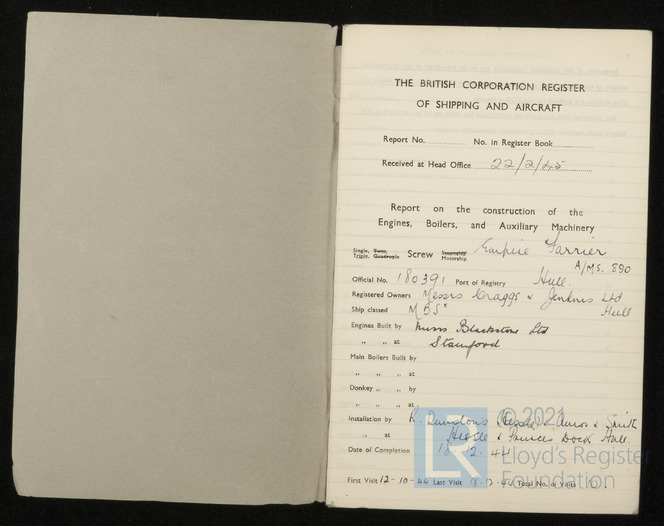 THE BRITISH CORPORATION REGISTER
OF SHIPPING AND AIRCRAFT
Report No. No. in Register Book
Received at Head Office 22/2/45
Report on the construction of the
Engines, Boilers, and Auxiliary Machinery
Single, Twin, Triple, Quadruple Screw Steamship Motorship Empire Farrier
A/MS. 890
Official No. 180391 Port of Registry Hull.
Registered Owners Messrs Craggs & Jenkins Ltd
Hull
Ship classed MBS*
Engines Built by Messrs Blackstone Ltd
" " at Stamford
Main Boilers Built by
" " at
Donkey " by
" " at
Installation by R. Dunston's Hessle & Amos & Smith
" at Hessle & Princes Dock Hull.
Date of Completion 18.12.44
First Visit 12-10-44 Last Visit 18.12.44 Total No. of Visits
© 2021
LR Lloyd's Register
Foundation